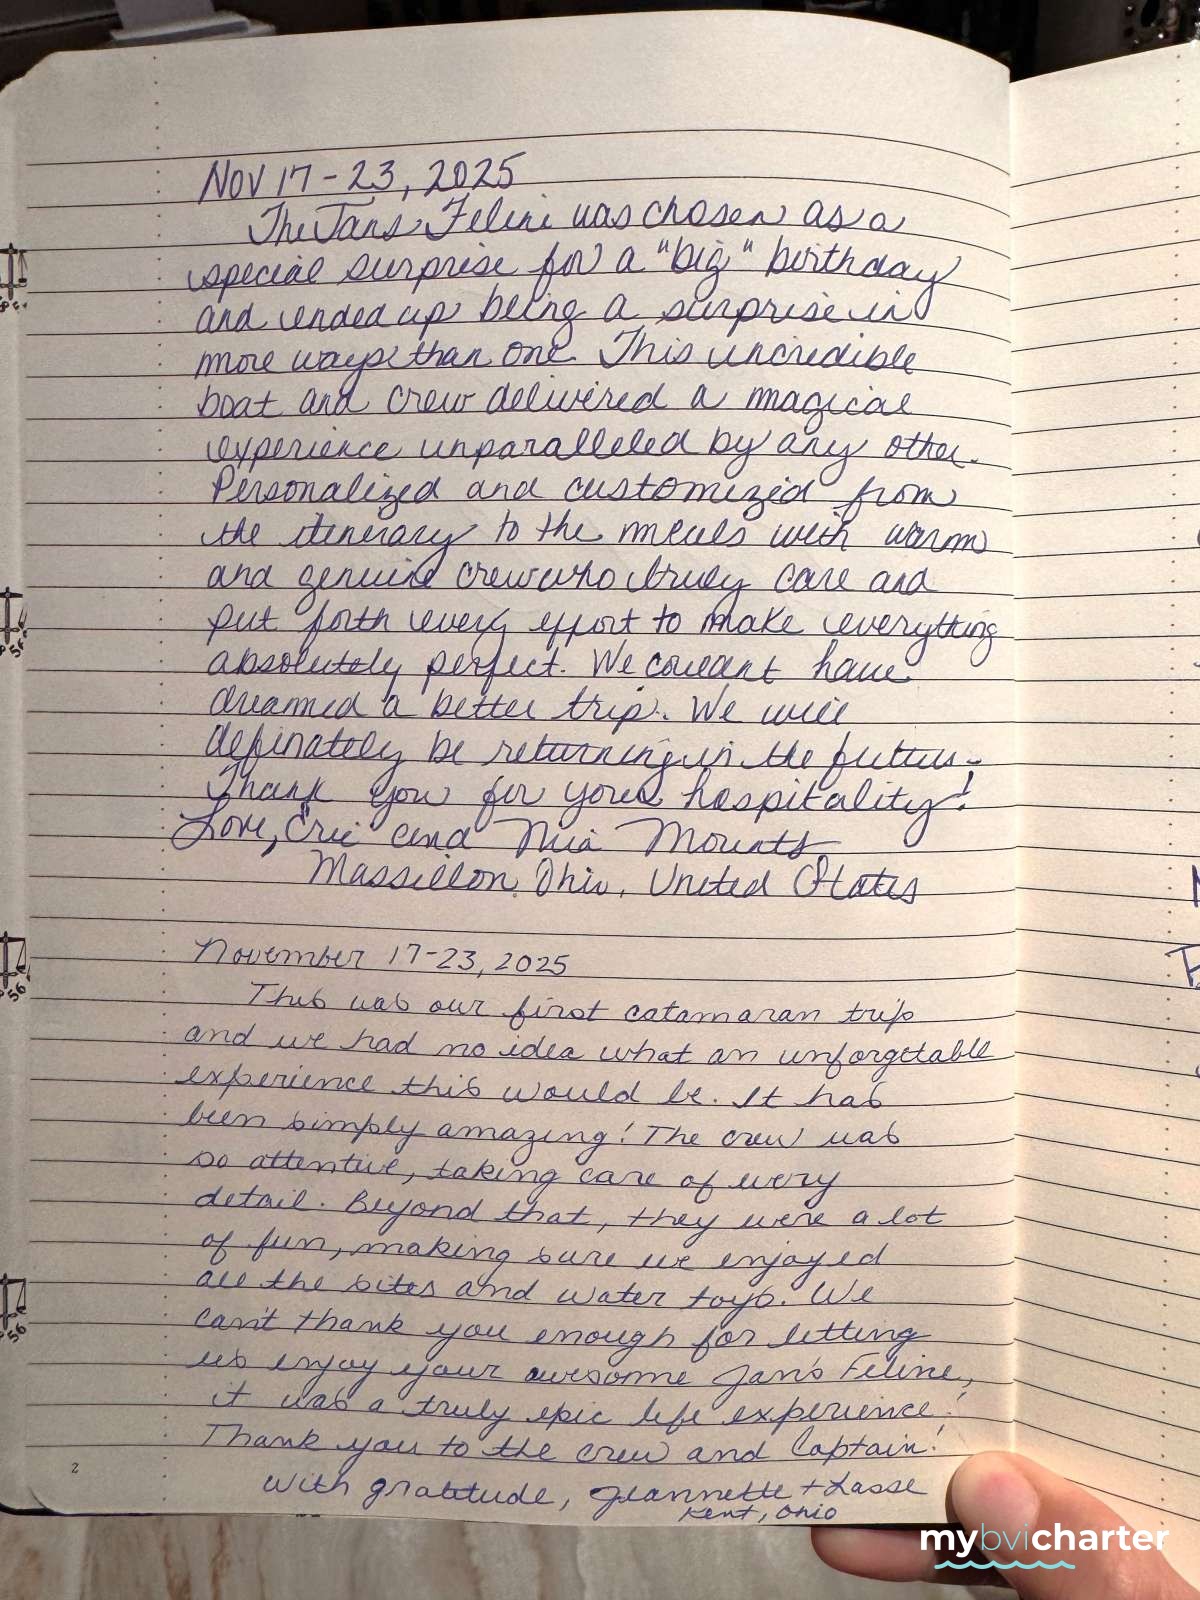 Nov 17-23, 2025
The Jans Feline was chosen as a
special surprise for a "big" birthday
and ended up being a surprise in
more ways than one. This incredible
boat and crew delivered a magical
experience unparalleled by any other.
Personalized and customized from
the itinerary to the meals with warm
and genuine crew who truly care and
put forth every effort to make everything
absolutely perfect. We couldnt have
dreamed a better trip. We will
definately be returning in the future.
Thank you for your hospitality!
Love, Eric and Nia Mounts
Massillon, Ohio, United States
November 17-23, 2025
This was our first catamaran trip
and we had no idea what an unforgetable
experience this would be. It has
been simply amazing! The crew was
so attentive, taking care of every
detail. Beyond that, they were a lot
of fun, making sure we enjoyed
all the sites and water toys. We
can't thank you enough for letting
us enjoy your awesome Jan's Feline,
it was a truly epic life experience!
Thank you to the crew and Captain!
With gratitude, Jeannette + Lasse
Kent, Ohio
2
56
56
56
mybvicharter